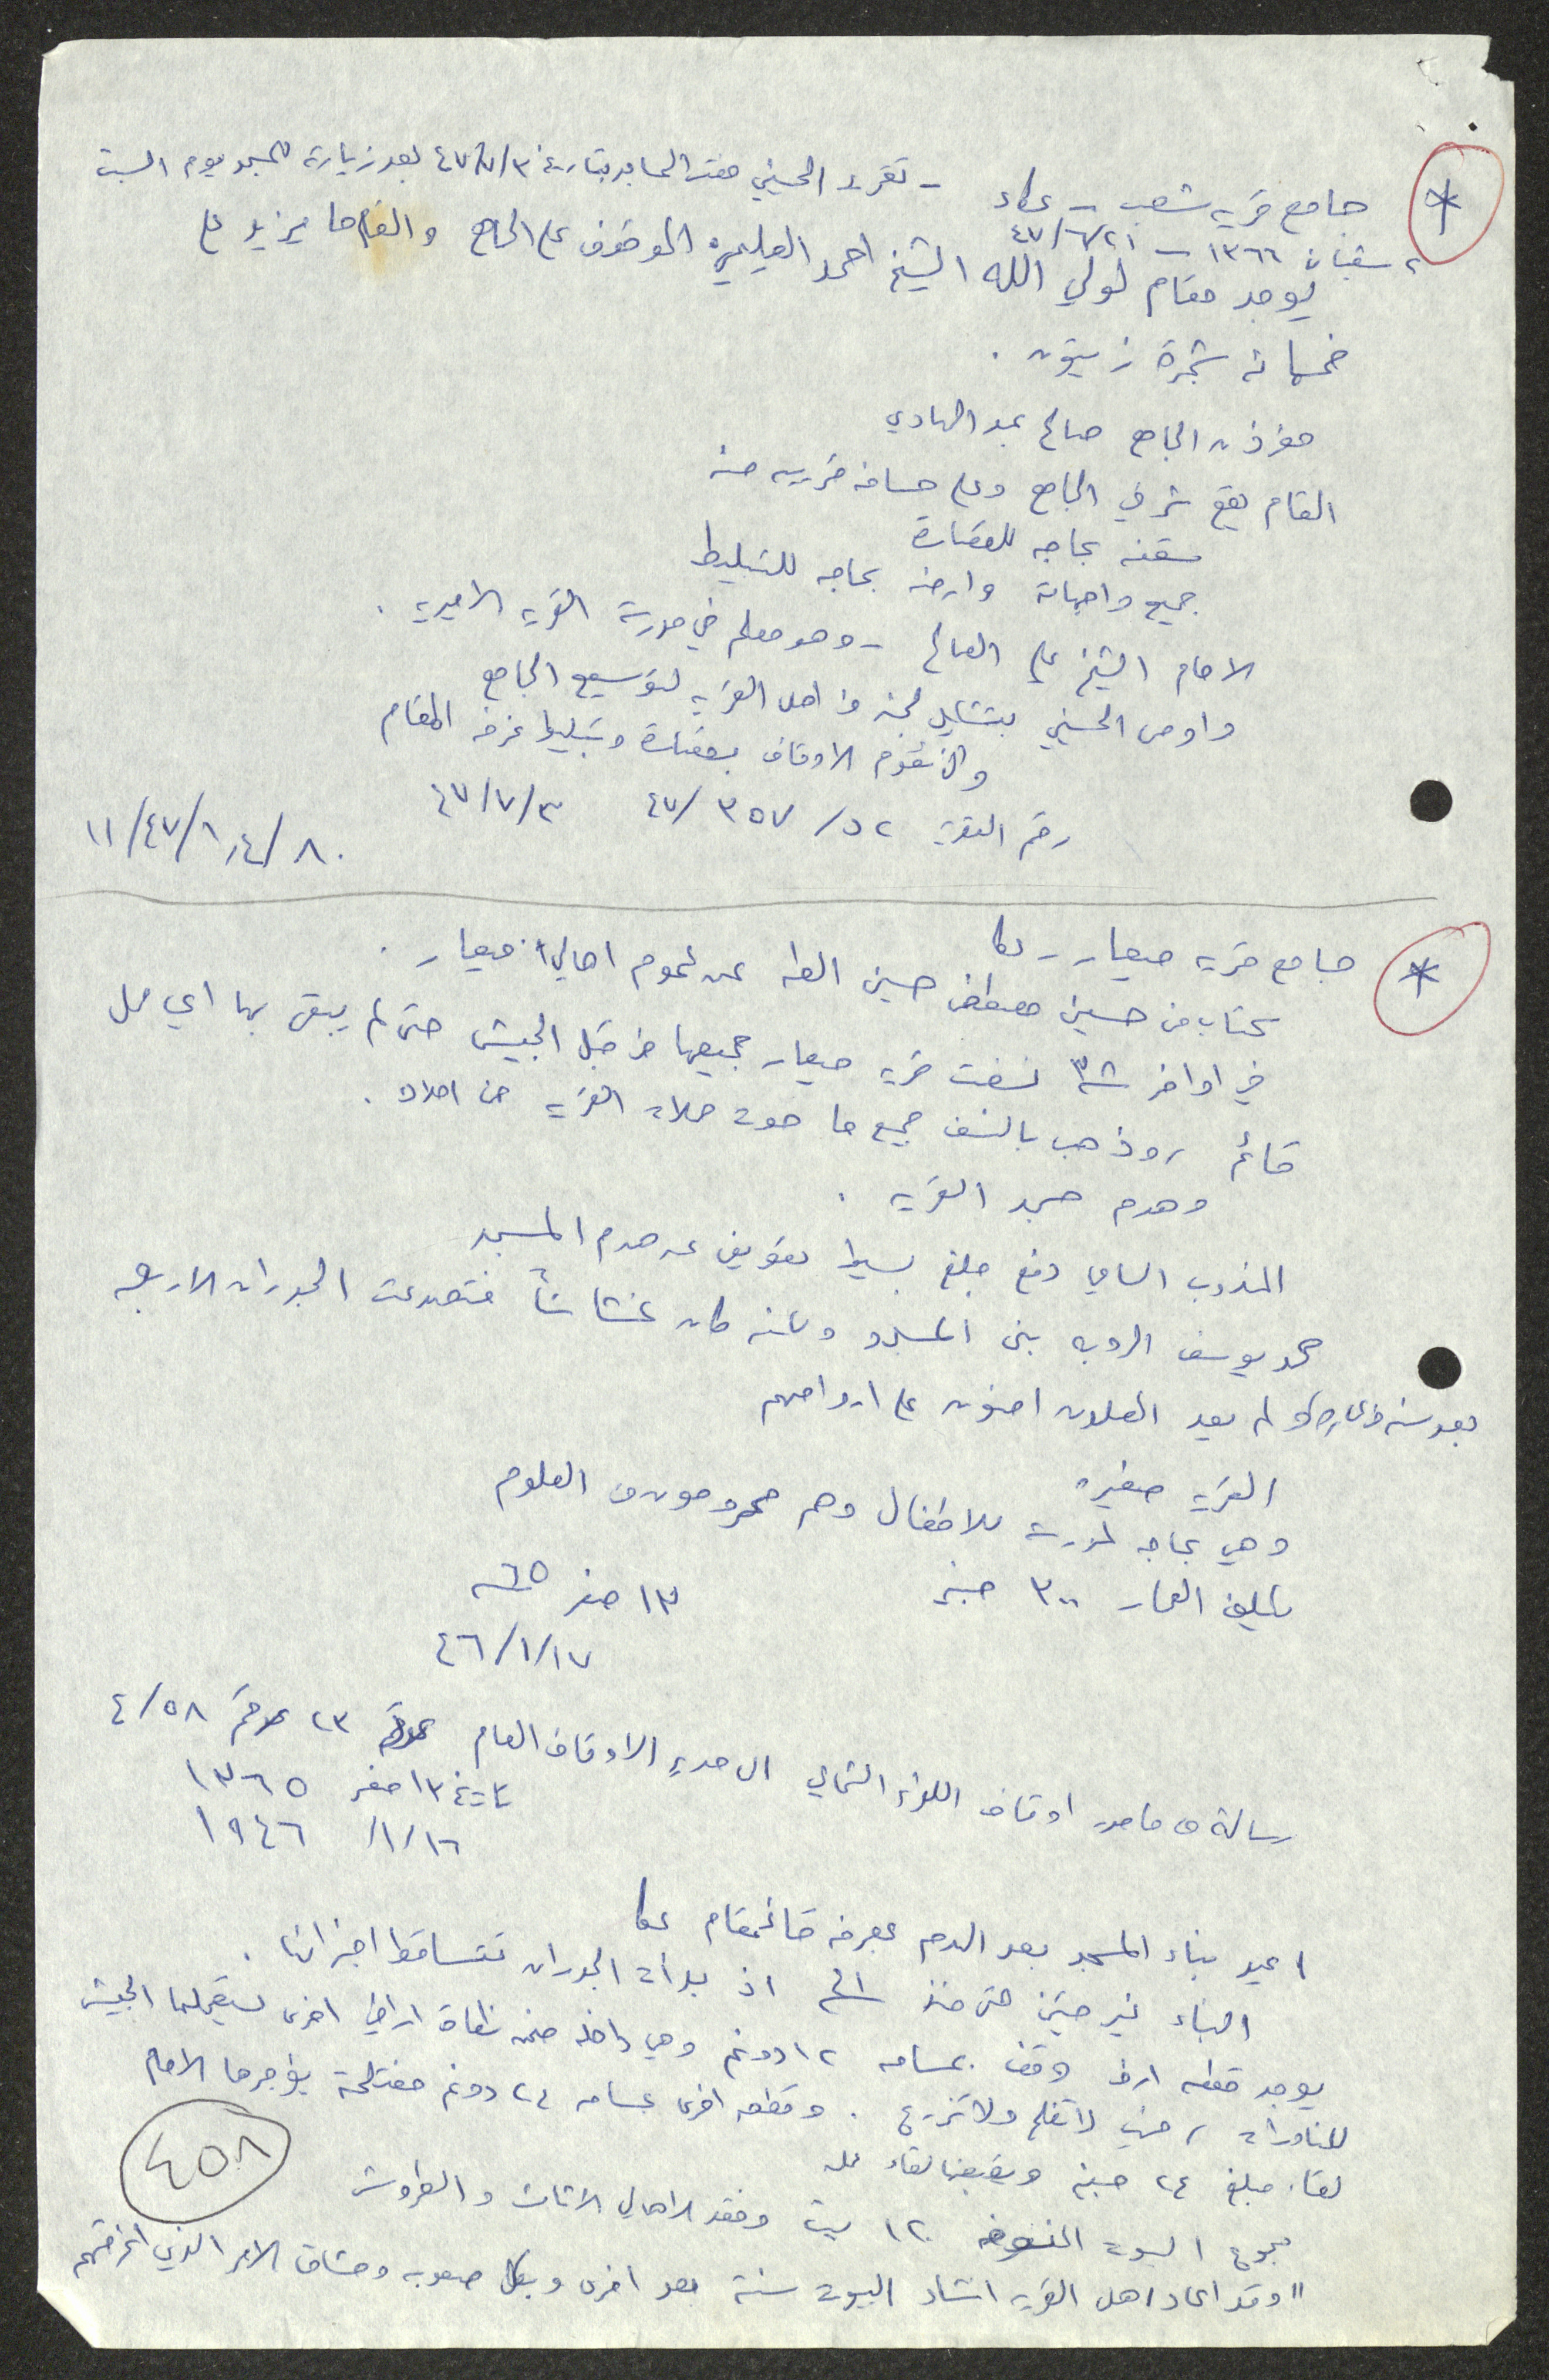 * جامع قرية شعب – عكاء – تقرير الحسيني مفتش المساجد بتاريخ ٤٧/٧/٣ بعد زيارته للمسجد يوم السبت
٢ شعبان ١٣٦٦ – ٤٧/٦/٢١
يوجد مقام لولي الله الشيخ احمد الموقوف على الجامع والمقام ما يزيد على
خمسماية شجرة زيتون .
مؤذن الجامع صالح عبد الهادي
المقام يقع شرقي الجامع وعلى مسافة قريبة منه
سقفه بحاجه للقصارة
جميع واجهاته وارضه بحاجه للتبليط
الامام الشيخ علي الصالح – وهو معلم في مدرسة القرية الاميرية .
واوصى الحسيني بتشكيل لجنه من اهل القرية لتوسيع الجامع
وان تقوم الاوقاف بقصارة وتبليط غرفة المقام
رقم التقرير ٥٢/ ٣٥٧ /٤٧ ٤٧/٧/٣
١١/٤٧/١,٤/٨٠
* جامع قرية ميعار – عكا
كتاب من حسين مصطفى حسين الطه عن عموم اهالي ميعار .
في اواخر سنة ٣٨ نسفت قرية ميعار جميعها من قبل الجيش حتى لم يبقى بها اي محل
قائم , وذهب بالنسف جميع ما حوت محلات القرية من املاك .
وهدم مسجد القرية .
المندوب السامي دفع مبلغ بسيط تعويض عن هدم المسجد
محمد يوسف بنى المسجد ولكنه كان غشاشاً فتصدعت الجدران الاربعه
بعد سنه ولم يعد المصلون امنون على ارواحهم
القرية صغيره
وهي بحاجه لمدرسة للاطفال وهم محرومون من العلوم
تكليف العمار ٣٠٠ جنيه ١٣ صفر ٦٥
٤٦/١/١٧
رسالة من مامور اوقاف اللواء الشمالي الى مدير الاوقاف العام ٢٣ رقم ٤/٥٨
تاريخ ١٣ صفر ١٣٦٥
١٩٤٦ /١/١٦
اعيد بناء المسجد بعد الهدم بمعرفة قائمقام عكا
البناء غير متين حتى منذ اذ بدأت الجدران تتساقط اجزائها .
يوجد قطعه ارض وقف بمساحه ١٢ دونم وهي داخله ضمن نطاق اراضي اخرى يستعملها الجيش
للمناورات , فهي لا تفلح ولا تزرع . وقطعه اخرى بمساحه ٢٤ دونم مفتلحة يؤجرها الامام
لقاء مبلغ ٢٤ جنيه ويقبضها لقاء عمله
مجموع البيوت المنسوفه ١٢٠ بيت وفقد الاهالي الاثاث والطروش
" وقد اعاد اهل القرية انشاء البيوت سنة بعد اخرى وبكل صعوبه ومشاق الامر الذي
٤٥٨